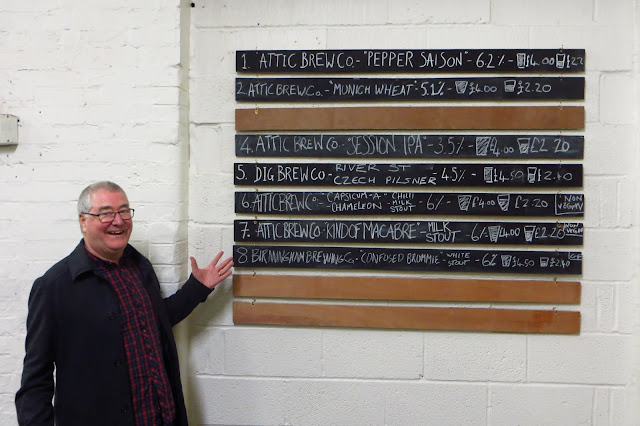 1. ATTIC BREW CO. - "PEPPER SAISON" - 6.2% - £4.00 £2.2
2. ATTIC BREW CO. - "MUNICH WHEAT" - 5.1% - £4.00 £2.20
4. ATTIC BREW CO - "SESSION IPA" - 3.5% - £4.00 £2.20
5. DIG BREW CO - RIVER ST CZECH PILSNER - 4.5% - £4.50 £2.40
6. ATTIC BREW CO. - "CAPSICUM-A-CHAMELEON CHILI MILK STOUT - 6% - £4.00 £2.20 NON VEGAN
7. ATTIC BREW CO "KIND OF MACABRE" - MILK STOUT - 6% £4.00 £2.20 NON VEGAN
8 BIRMINGHAM BREWING Co. "CONFUSED BRUMMIE" - WHITE STOUT - 6% £4.50 £2.40